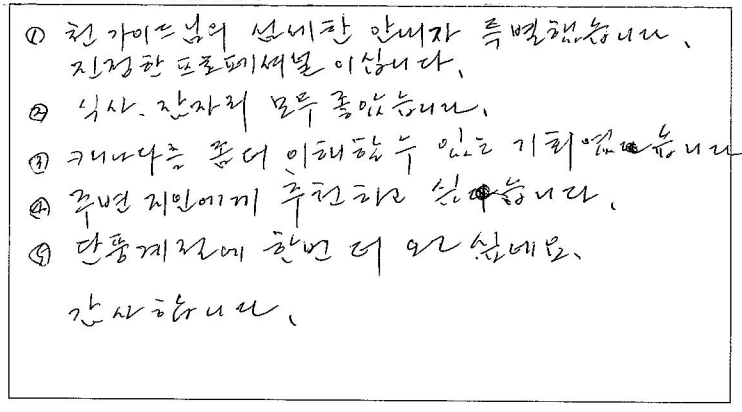 ① 천 가이드님의 섬세한 안내가 특별했습니다.
진정한 프로페셔널 이십니다.
② 식사. 잠자리 모두 좋았습니다.
③ 캐나다를 좀더 이해할 수 있는 기회였습니다
④ 주변 지인에게 추천하고 싶습니다.
⑤ 단풍계절에 한번 더 오고 싶네요.
감사합니다.